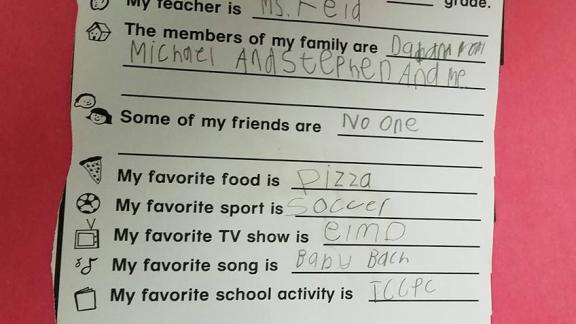 My teacher is Ms. Reid grade.
The members of my family are Dad and Mom
Michael And Stephen And Me
Some of my friends are No One
My favorite food is pizza
My favorite sport is soccer
My favorite TV show is elmo
My favorite song is Baby Bach
My favorite school activity is